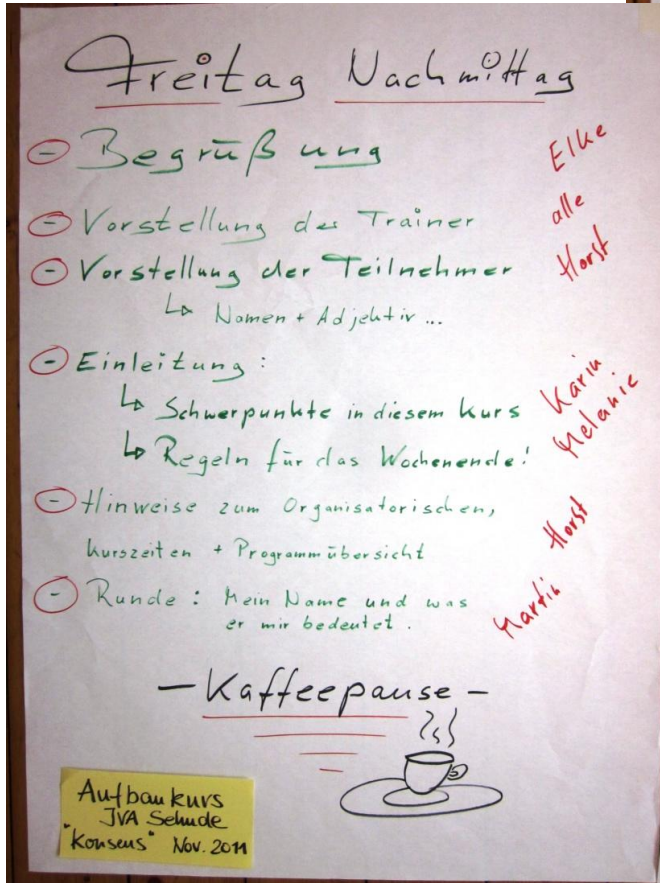 Freitag Nachmittag
- Begrüßung Elke
- Vorstellung der Trainer alle
- Vorstellung der Teilnehmer Horst
↳ Namen + Adjektiv ...
- Einleitung:
↳ Schwerpunkte in diesem Kurs Karin
↳ Regeln für das Wochenende! Melanie
- Hinweise zum Organisatorischen, Horst
Kurszeiten + Programmübersicht
- Runde: Mein Name und was Martin
er mir bedeutet.
- Kaffeepause -
Aufbaukurs
JVA Sehnde
"Konsens" Nov. 2011